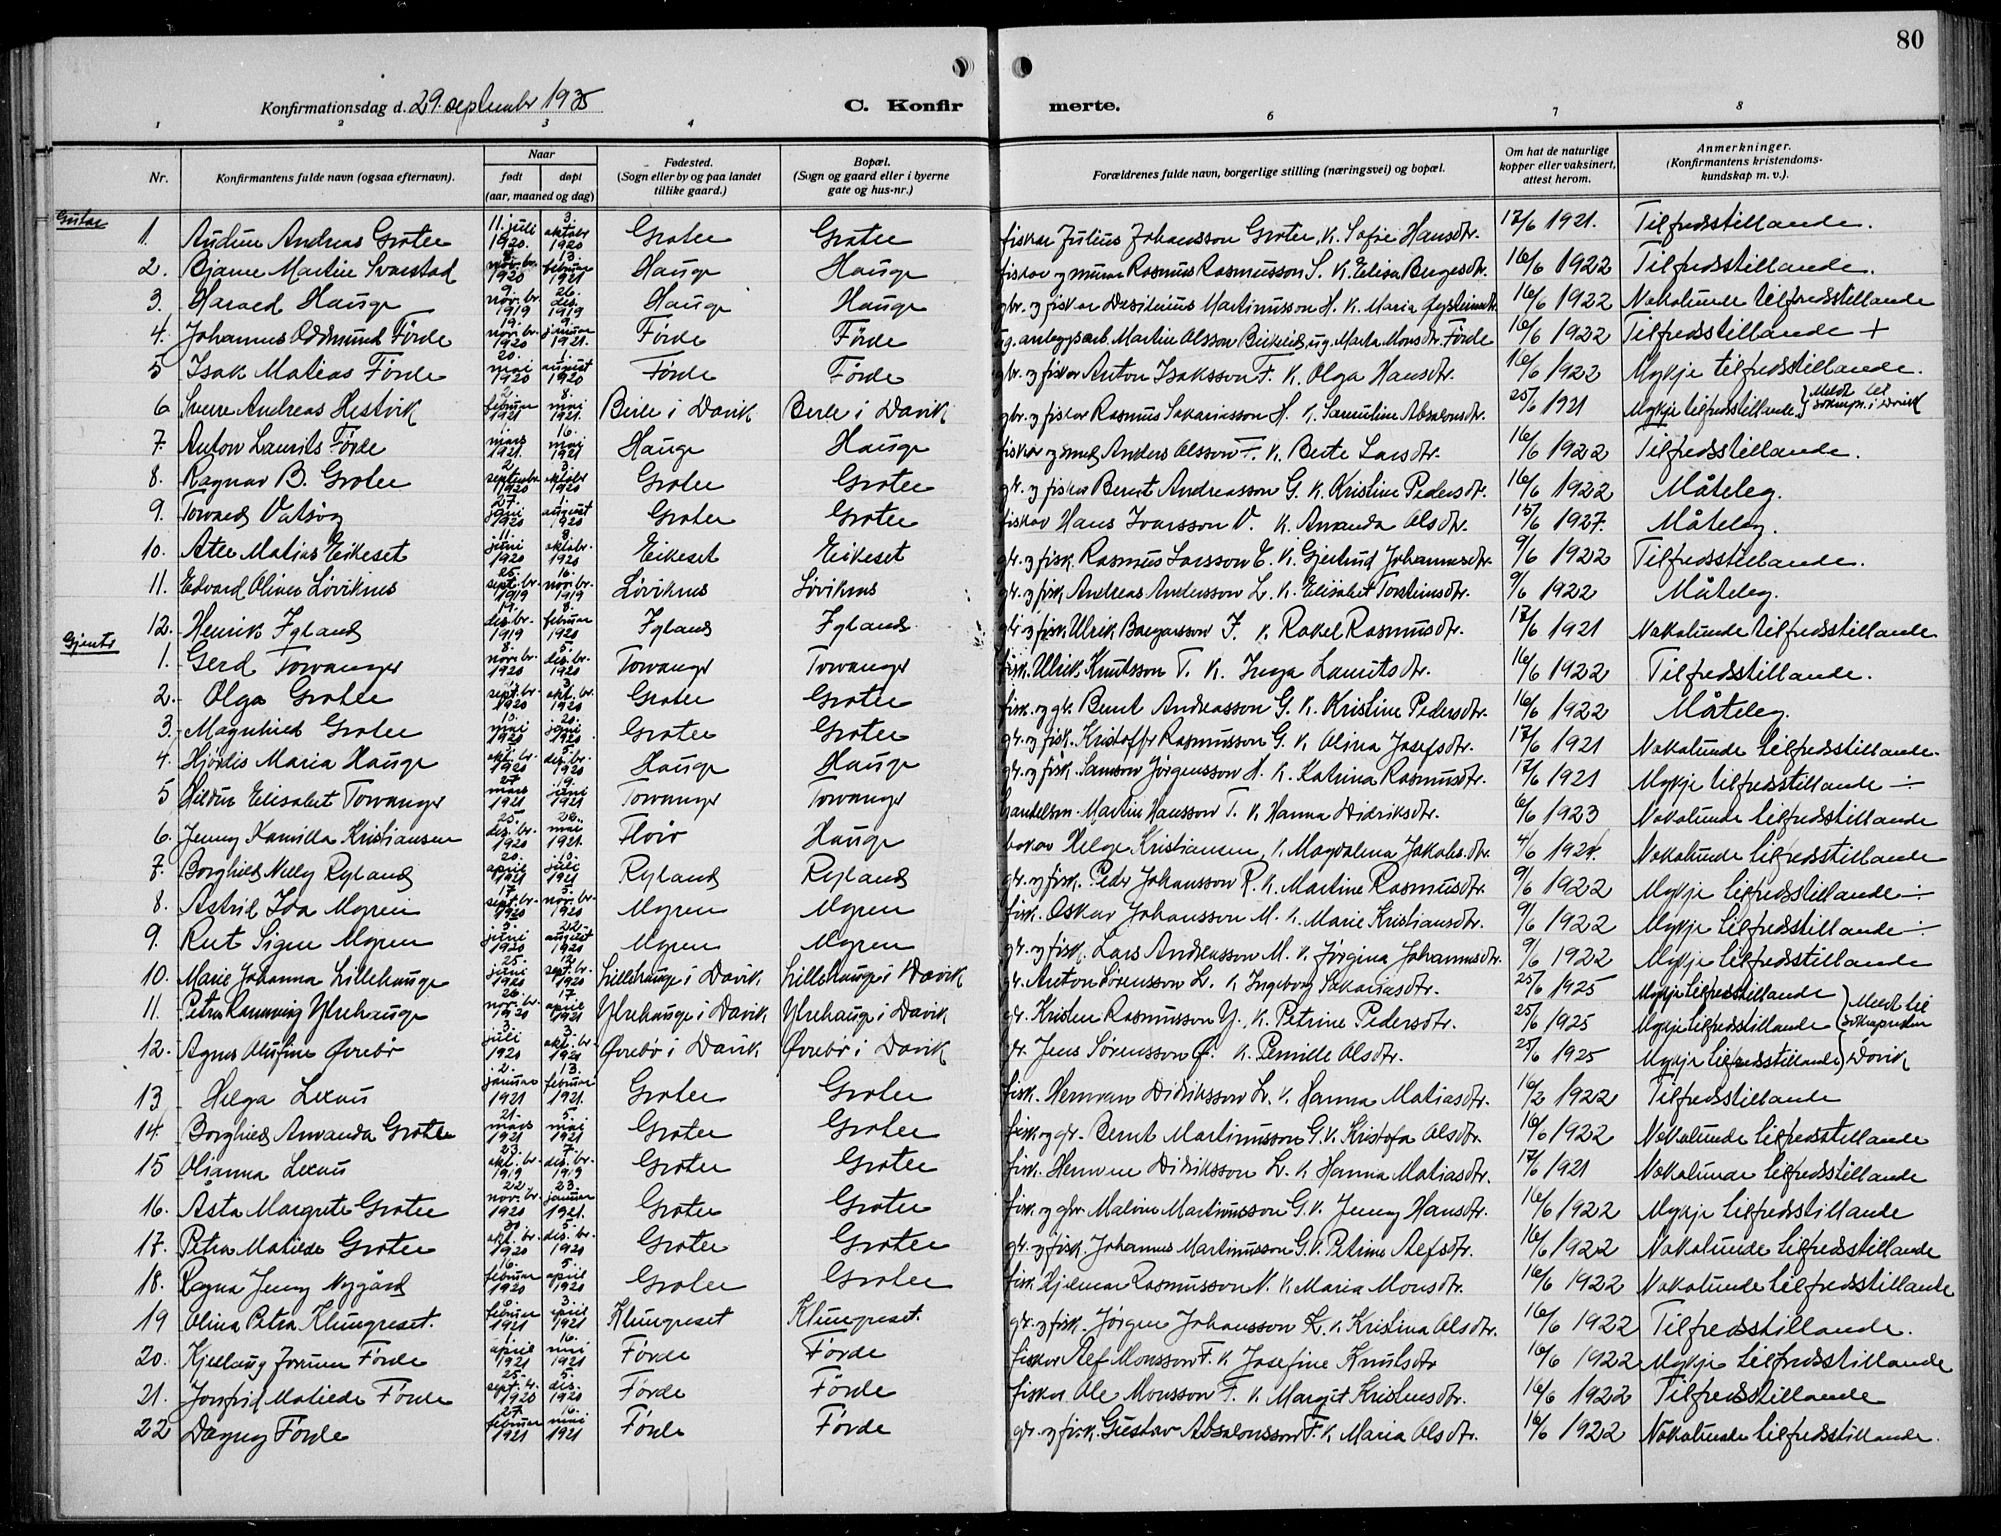 80
Konfirmationsdag d. 29. september 1935 C. Konfirmerte.
1 2 3 4 6 7 8
Nr. Konfirmantens fulde navn (ogsaa efternavn). Naar født døpt (aar, maaned og dag) Fødested. (Sogn eller by og paa landet tillike gaard.) Bopæl. (Sogn og gaard eller i byerne gate og hus-nr.) Forældrenes fulde navn, borgerlige stilling (næringsvei) og bopæl. Om hat de naturlige kopper eller vaksinert, attest herom. Anmerkninger. (Konfirmantens kristendomskundskap m. v.).
Gutar
1. Audun Andreas Grotle 11. juli 1920. 3. oktobr 1920 Grotle Grotle fiskar Julius Johansson Grotle, K. Sofie Hansdtr. 17/6 1921. Tilfredsstillande.
2. Bjarne Martin Svarstad nov.br. 1920 13. februar 1921 Hauge Hauge fiskar og murar Rasmus Rasmusson S. K. Elisa Bergesdtr. 16/6 1922 Tilfredsstillande.
3. Harald Hauge 9. nov.br. 1919 26. des. 1919 Hauge Hauge gbr. og fiskar Martinusson H. K. Maria 16/6 1922 Nokolunde tilfredsstillande
4. Johannes Oddmund Förde 19. nov.br. 1920 9. januar 1921. Förde Förde ug. anleggsarb. Martin Olsson Birkeid, ug. Marta Monsdtr. Förde 16/6 1922 Tilfredsstillande +
5 Isak Matias Förde 20. mai 1920 1. august 1920 Förde Förde gbr. og fiskar Anton Isaksson F. K. Olga Hansdtr. 16/6 1922 Mykje tilfredsstillande.
6 Sverre Andreas Hestvik 2. februar 1921 8. mai 1921. Berle i Davik Berle i Davik gbr. og fiskar Rasmus Sakariasson H. K. Serentine Absalonsdtr. 25/6 1921 Mykje tilfredsstillande. } Meldt til soknepr. i Davik
7. Anton Laurits Förde 1. mars 1921. 16. mai 1921 Hauge Hauge fiskar og smed Anders Olsson F. K. Berte Larsdtr. 16/6 1922 Tilfredsstillande.
8. Ragnar B. Grotle 2. septembr 1920 3. oktobr 1920 Grotle Grotle gbr. og fiskar Bernt Andreasson G. K. Kristine Pedersdtr. 16/6 1922 Måteleg.
9. Torvald Vatsög 27. juni 1920 1. august 1920 Grotle Grotle fiskar Hans Ivarsson V. K. Amanda Olsdtr. 15/6 1927. Måteleg.
10. Atle Matias Eikeset 11. juni 1920 3. oktobr. 1920 Eikeset Eikeset gbr. og fisk. Rasmus Larsson E. K. Gjertrud Johannesdtr. 9/6 1922 Tilfredsstillande.
11. Edvard Oliver Löviknes 25. sept.br. 1919 16. nov.br. 1919 Löviknes Löviknes gbr. og fisk. Andreas Andersson L. K. Elisabet Torsteinsdtr. 9/6 1922 Måteleg.
12. Henrik Igland 19. des.br. 1919 8. februar 1920 Igland Igland gbr. og fisk. Ulrik I. K. Rakel Rasmusdtr. 17/6 1921 Nokolunde tilfredsstillande
Gjentr
1. Gerd Torvanger 8. nov.br. 1920 5. des.br. 1920 Torvanger Torvanger fisk. Ulrik Knutsson T. K. Inga Lauritsdtr. 16/6 1922 Tilfredsstillande.
2. Olga Grotle sept.br. 1920 3. okt.br. 1920 Grotle Grotle fisk. og gbr. Bernt Andreasson G. K. Kristine Pedersdtr. 16/6 1922 Måteleg.
3. Magnhild Grotle 10. mai 1920 20. juni 1920 Grotle Grotle gbr. og fisk. Kristoffer Rasmusson G. K. Olina Josefsdtr. 17/6 1921 Nokolunde tilfredsstillande.
4. Hjördis Maria Hauge okt.br. 1920 5. des.br. 1920 Hauge Hauge gbr. og fisk. Samson Jörgensson H. K. Katrina Rasmusdtr. 17/6 1921 Mykje tilfredsstillande ÷
5 Hildur Elisabet Torvanger 27. mars 1921 9. juni 1921 Torvanger Torvanger handelsm. Martin Hansson T. K. Hanna Didriksdtr. 6/6 1923 Nokolunde tilfredsstillande
6. Jenny Kamilla Kristiansen 25. des.br. 1920 22. mai 1921. Florö Hauge bakar Helge Kristiansen, K. Magdalena Jakobsdtr. 4/6 1924. Nokolunde tilfredsstillande
7. Borghild Nelly Ryland 20. april 1921 10. juli 1921 Ryland Ryland gbr. og fisk. Peder Johansson R. K. Martine Rasmusdtr. 9/6 1922 Mykje tilfredsstillande ÷
8. Astrid Ida Myren 17. sept.br. 1920 5. nov.br. 1920 Myren Myren fisk. Oskar Johansson M. K. Marie Kristiansdtr. 9/6 1922 Mykje tilfredsstillande ÷
9. Rut Signe Myren 3. juni 1920 22. august 1920 Myren Myren gbr. og fisk. Lars Andreasson M. K. Jörgina Johannesdtr. 9/6 1922 Mykje tilfredsstillande
10. Marie Johanna Lillehauge 25. juni 1920 12. sept.br. 1920 Lillehauge i Davik Lillehauge i Davik gbr. Anton Sörensson L. K. Ingeborg Sakariasdtr. 25/6 1925 Mykje tilfredsstillande
11. Petra Ramming Ytrehauge 26. nov.br. 1920 17. april 1921 Ytrehauge i Davik Ytrehauge i Davik gbr. Kristen Rasmusson Y. K. Petrine Pedersdtr. 25/6 1925 Mykje tilfredsstillande } Meldt til soknepresten
12. Agnes Olufine Övrebö 3. juli 1920 3. okt.br. 1920 Övrebö i Davik Övrebö i Davik gbr. Jens Sörensson Ö. K. Pernille Olsdtr. 25/6 1925 Mykje tilfredsstillande } Davik
13 Helga Lexau 2. januar 1921 13. februar 1921. Grotle Grotle fisk. Herman Didriksson L. K. Hanna Matiasdtr. 16/2 1922 Tilfredsstillande
14. Borghild Amanda Grotle 21. mars 1921 5. mai 1921 Grotle Grotle fisk. og gbr. Bernt Martinusson G. K. Kristofa Olsdtr. 16/6 1922 Nokolunde tilfredsstillande
15 Olianna Lexau 23. okt.br. 1919 7. des.br. 1919 Grotle Grotle fisk. Herman Didriksson L. K. Hanna Matiasdtr. 17/6 1921 Nokolunde tilfredsstillande
16. Asta Margrete Grotle 22. nov.br. 1920 23. januar 1921. Grotle Grotle fisk. og gbr. Malvin Martinusson G. K. Jenny Hansdtr. 16/6 1922 Mykje tilfredsstillande
17. Petra Matilde Grotle 30. okt.br. 1920 5. des.br. 1920 Grotle Grotle gbr. og fisk. Johannes Martinusson G. K. Petrine Alfsdtr. 16/6 1922 Nokolunde tilfredsstillande
18. Ragna Jenny Nygård 16. februar 1920 5. april 1920 Grotle Grotle fisk. Hjelmar Rasmusson N. K. Maria Monsdtr. 16/6 1922 Nokolunde tilfredsstillande
19 Olina Petra Klungreset. februar 1921 3. april 1921 Klungreset Klungreset. gbr. og fisk. Jörgen Johansson K. K. Kristina Olsdtr. 16/6 1922 Tilfredsstillande.
20. Kjellaug Jorunn Förde 1. april 1921 16. mai 1921 Förde Förde fiskar Alf Monsson F. K. Josefine Knutsdtr 16/6 1922 Mykje tilfredsstillande
21. Jonfrid Matilde Förde 25. sept.br. 1920 5. des. 1920 Förde Förde fiskar Ole Monsson F. K. Margit Kristensdtr. 16/6 1922 Tilfredsstillande
22 Dagny Förde 27. februar 1921 16. mai 1921 Förde Förde gbr. og fisk. Gustav Absalonsson F. K. Maria Olsdtr. 16/6 1922 Nokolunde tilfredsstillande.